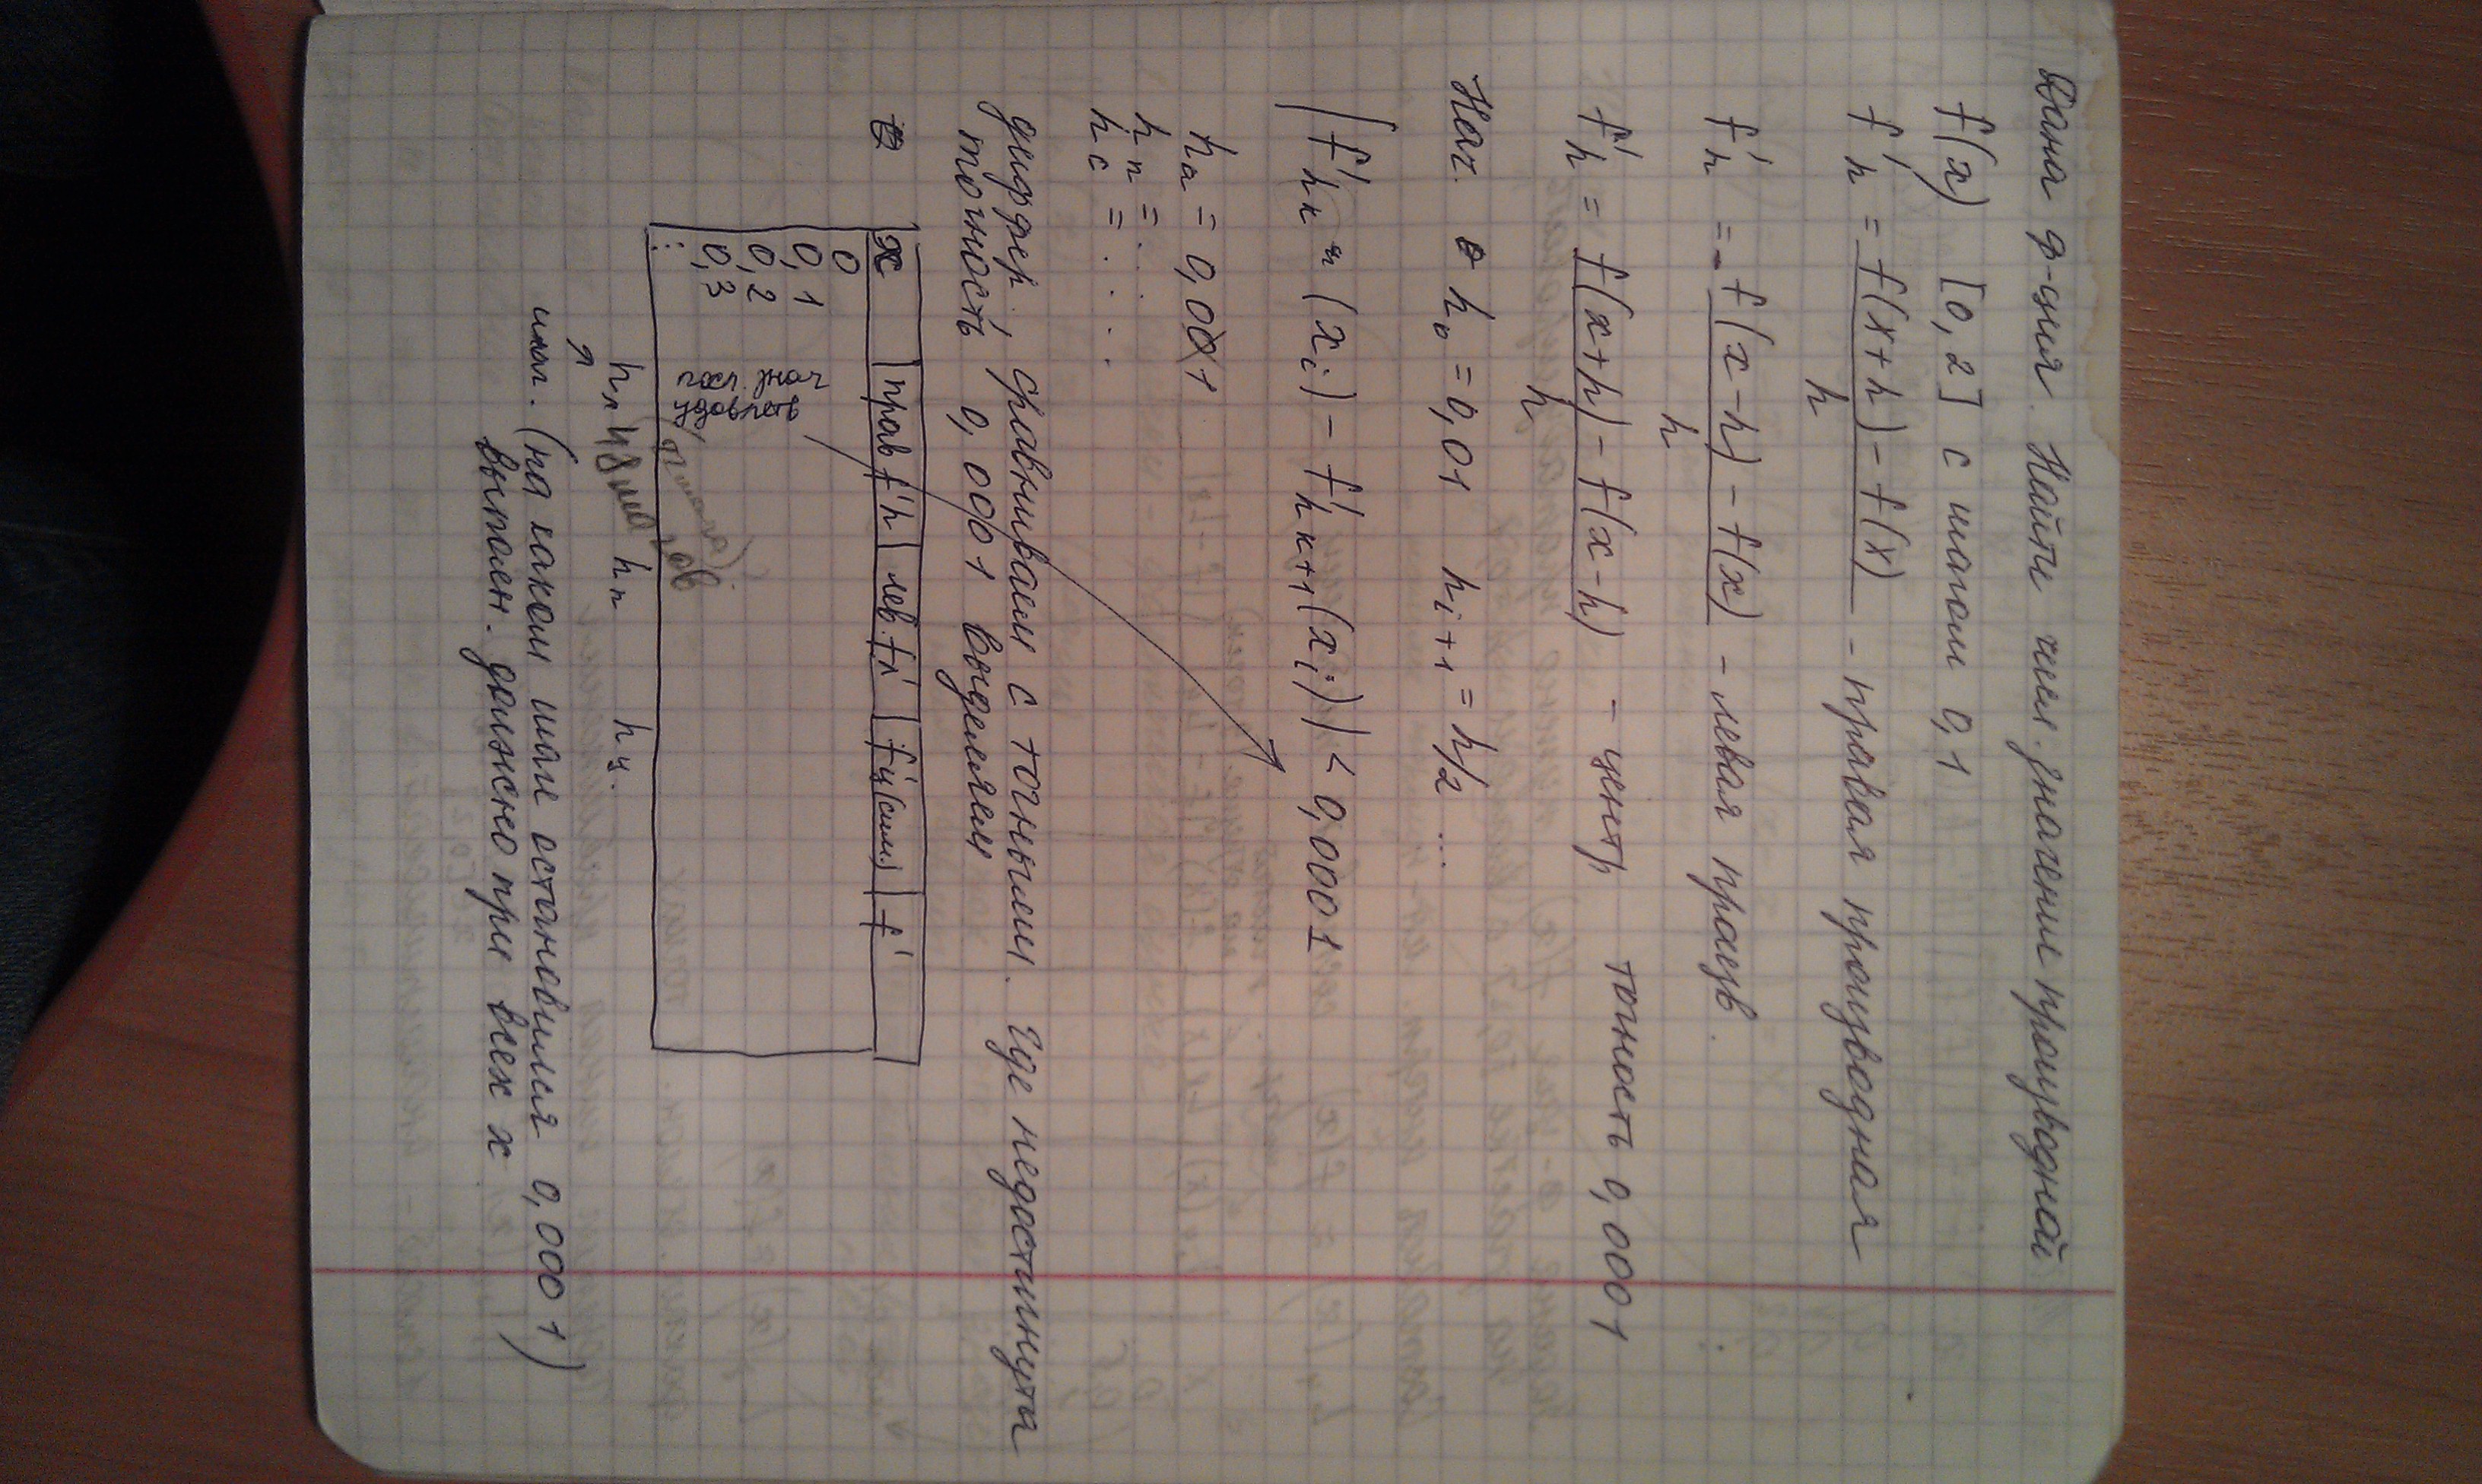 Дана ф-ция. Найти числ. значение производной
f(x) [0,2] с шагом 0,1
f'h = f(x+h) - f(x) / h - правая производная
f'h = - f(x-h) - f(x) / h - левая произв.
f'h = f(x+h) - f(x-h) / h - центр точность 0,0001
Нач. h₀ = 0,01 hᵢ₊₁ = h/2 ...
|f'hк (xᵢ) - f'hк+1(xᵢ)| < 0,0001
hл = 0,001
hп = . . .
hс = . . .
диффер. сравниваем с точными. Где недостигнута
точность 0,0001 выделяем
x | прав f'h | лев. fл' | f'ц(сим) | f'
0
0,1
0,2
0,3
⋮
посл. знач
удовлетв
hл hп hц.
(на каком шаге остановился 0,0001)
выполн. должно при всех x